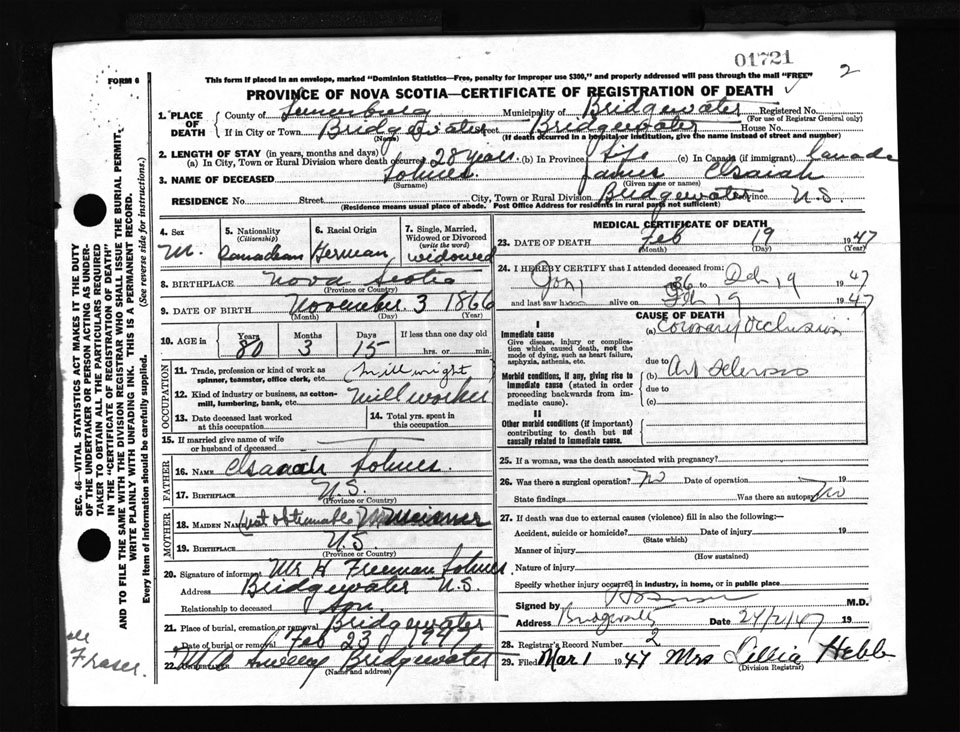 01721
2
FORM 6
This form if placed in an envelope, marked "Dominion Statistics—Free, penalty for improper use $300," and properly addressed will pass through the mail "FREE"
PROVINCE OF NOVA SCOTIA—CERTIFICATE OF REGISTRATION OF DEATH
1. PLACE OF DEATH
County of Lunenburg Municipality of Bridgewater Registered No.
(For use of Registrar General only)
If in City or Town Bridgewater Street Bridgewater House No.
(Name) (If death occurred in a hospital or institution, give the name instead of street and number)
2. LENGTH OF STAY (in years, months and days)
(a) In City, Town or Rural Division where death occurred 28 years (b) In Province Life (c) In Canada (if immigrant) Canada
3. NAME OF DECEASED Lohnes James Isaiah
(Surname) (Given name or names)
RESIDENCE No. Street City, Town or Rural Division Bridgewater Province N.S.
(Residence means usual place of abode. Post Office Address for residents in rural parts not sufficient)
4. Sex M.
5. Nationality (Citizenship) Canadian
6. Racial Origin German
7. Single, Married, Widowed or Divorced (write the word) widowed
8. BIRTHPLACE Nova Scotia
(Province or Country)
9. DATE OF BIRTH November 3 1866
(Month) (Day) (Year)
10. AGE in Years Months Days If less than one day old
80 3 15 hrs. or min.
OCCUPATION
11. Trade, profession or kind of work as spinner, teamster, office clerk, etc. Millwright
12. Kind of industry or business, as cotton-mill, lumbering, bank, etc. Mill worker
13. Date deceased last worked at this occupation
14. Total yrs. spent in this occupation
15. If married give name of wife or husband of deceased
FATHER
16. NAME Isaiah Lohnes.
17. BIRTHPLACE N.S.
(Province or Country)
MOTHER
18. MAIDEN NAME (not obtainable) Meisner
19. BIRTHPLACE N.S.
(Province or Country)
20. Signature of informant Mr H Freeman Lohnes.
Address Bridgewater N.S.
Relationship to deceased Son.
21. Place of burial, cremation or removal Bridgewater
Date of burial or removal Feb 23 1947
22. UNDERTAKER Sweeny Bridgewater
(Name and address)
Fraser.
MEDICAL CERTIFICATE OF DEATH
23. DATE OF DEATH Feb 19 1947
(Month) (Day) (Year)
24. I HEREBY CERTIFY that I attended deceased from:
Feb 19 1947
and last saw alive on Feb 19 1947
CAUSE OF DEATH
I
Immediate cause
Give disease, injury or complication which caused death, not the mode of dying, such as heart failure, asphyxia, asthenia, etc.
(a) Coronary Occlusion
due to
Morbid conditions, if any, giving rise to immediate cause (stated in order proceeding backwards from immediate cause).
(b) Art Sclerosis
due to
(c)
II
Other morbid conditions (if important) contributing to death but not causally related to immediate cause.
25. If a woman, was the death associated with pregnancy?
26. Was there a surgical operation? No Date of operation 19
State findings Was there an autopsy? No
27. If death was due to external causes (violence) fill in also the following:—
Accident, suicide or homicide? Date of injury 19
(State which)
Manner of injury
(How sustained)
Nature of injury
Specify whether injury occurred in industry, in home, or in public place
Signed by M.D.
Address Bridgewater Date 24/2/47 19
28. Registrar's Record Number 2
29. Filed Mar 1 1947 Mrs Lillia Hebb
(Division Registrar)
SEC. 46—VITAL STATISTICS ACT MAKES IT THE DUTY
OF THE UNDERTAKER OR PERSON ACTING AS UNDER-
TAKER TO OBTAIN ALL THE PARTICULARS REQUIRED
IN THE "CERTIFICATE OF REGISTRATION OF DEATH"
AND TO FILE THE SAME WITH THE DIVISION REGISTRAR WHO SHALL ISSUE THE BURIAL PERMIT.
WRITE PLAINLY WITH UNFADING INK. THIS IS A PERMANENT RECORD.
Every item of information should be carefully supplied. (See reverse side for instructions.)